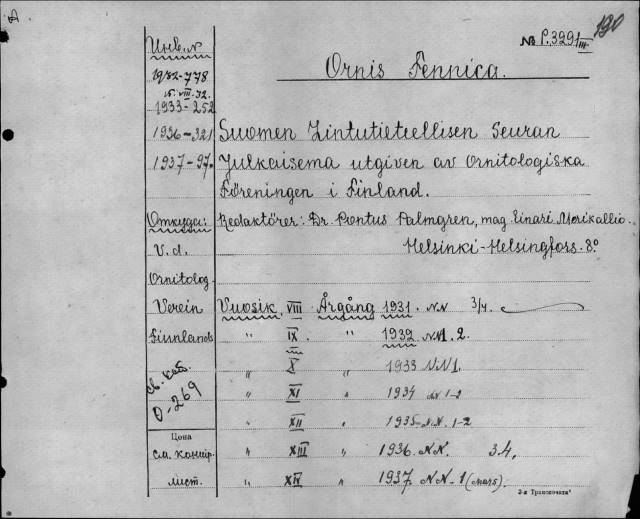 190
№ P.3291 III
Ornis Fennica.
Инв. №
1932-778
15.VIII.32.
1933-252
1936-321
1937-97.
Suomen Lintutieteellisen Seuran
Julkaisema utgiven av Ornitologiska
Föreningen i Finland.
Откуда:
V. d.
Ornitolog.
Verein
Finnlands
Redaktörer: Dr. Pontus Palmgren, mag. Einari Merikallio.
Helsinki-Helsingfors. 8°
Vuosik. VIII Årgång 1931. NN 3/4.
" IX. " 1932. NN1. 2.
" X " 1933 NN1.
" XI " 1934 NN 1-2
" XII " 1935 N.N. 1-2
" XIII " 1936. N.N. 3.4.
" XIV " 1937. N.N.-1 (Mars).
св. каб.
0-269
Цена
см. контр.
лист.
3-я Транспечать"